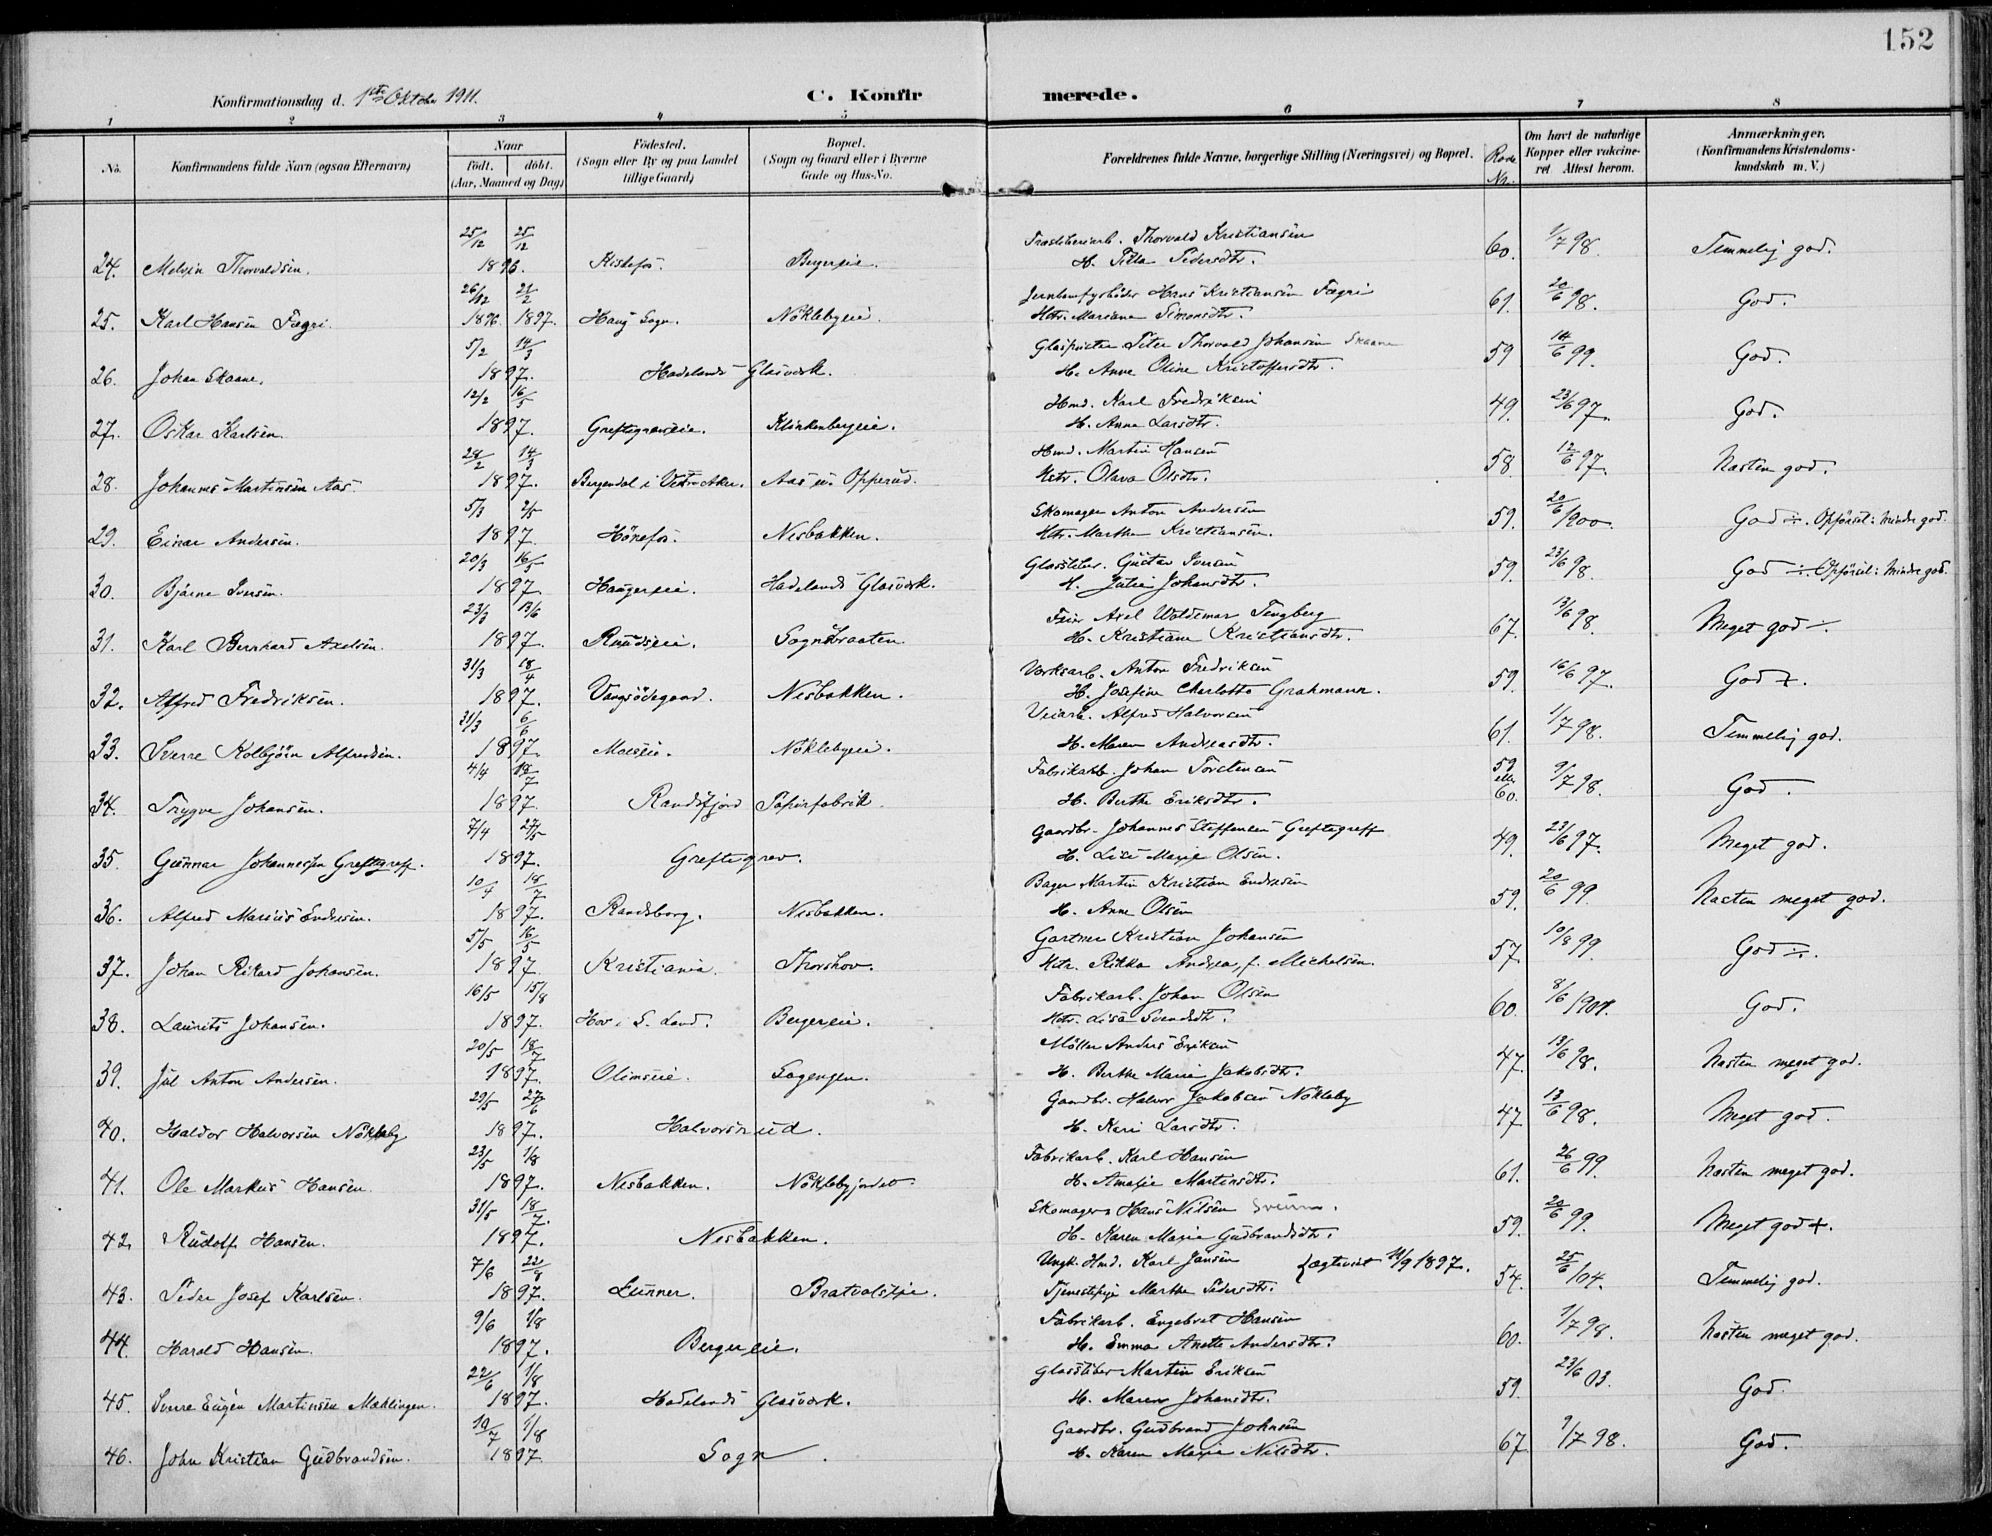 152
Konfirmationsdag d. 1ste Oktober 1911.
C. Konfirmerede.
1 2 3 4 5 6 7 8
No. Konfirmandens fulde Navn (ogsaa Efternavn) Naar født. døbt. (Aar, Maaned og Dag) Fødested. (Sogn eller By og paa Landet tillige Gaard) Bopæl. (Sogn og Gaard eller i Byerne Gade og Hus-No. Forældrenes fulde Navne, borgerlige Stilling (Næringsvei) og Bopæl. Rode Nr. Om havt de naturlige Kopper eller vaccineret. Attest herom. Anmærkninger. (Konfirmandens Kristendomskundskab m. V.)
25/12 25/12 Thorvald Kristiansen
24. Melvin Thorvaldsen. 1896. Kistefos. Bergereie. H. Pedersdtr. 60. 1/7 98. Temmelig god.
26/12 21/2 Hans Kristiansen Fægri
25. Karl Hansen Fægri. 1896. 1897. Haug Sogn. Nøklebyeie. Hstr. Mariane Simonsdtr. 61. 20/6 98. God.
5/2 14/3 Peter Thorvald Johansen Skaane
26. Johan Skaane. 1897. Hadelands Glasværk. H. Anne Oline Kristoffersdtr. 59 14/6 99. God.
12/2 16/5 Hmd. Karl Fredriksen
27. Oskar Karlsen. 1897. Greftegraveie. Klinkenbergeie. H. Anne Larsdtr. 49. 23/6 97. God.
28/2 14/3 Hmd. Martin Hansen
28. Johannes Martinsen Aas. 1897. Bergendal i Vestre Aker. Aas u. Opperud. Hstr. Olava Olsdtr. 58 12/6 97. Næsten god.
5/3 2/5 Skomager Anton Andersen
29. Einar Andersen. 1897. Hønefos. Nesbakken. Hstr. Marthe Kristiansen. 59. 20/6 1900. God ÷. Opførsel: Mindre god.
20/3 16/5 Glassliber. Gustav Iversen
30. Bjarne Iversen. 1897. Haugereie. Hadelands Glasværk. H. Julie Johansdtr. 59. 23/6 98. God ÷. Opførsel: Mindre god.
23/3 13/6 Feier Axel Woldemar Tengberg
31. Karl Bernhard Axelsen. 1897. Ruudseie. Sognsbraaten. H. Kristiane Kristiansdtr. 67. 13/6 98. Meget god ÷.
31/3 18/4 Verksarb. Anton Fredriksen
32. Alfred Fredriksen. 1897. Vangsødegaard. Nesbakken. H. Josefine Charlotte Grahmann. 59. 16/6 97. God +.
31/3 6/6 Veiarb. Alfred Halvorsen
33. Sverre Kolbjørn Alfredsen. 1897. Moeseie. Nøklebyeie. H. Maren Andreasdtr. 61. 1/7 98. Temmelig god.
4/4 18/7 Fabrikarb. Johan Torstensen 59 eller
34. Trygve Johansen. 1897. Randsfjord Papirfabrik. H. Berthe Eriksdtr. 60. 9/7 98. God.
7/4 27/5 Gaardbr. Johannes Steffensen Greftegreff
35. Gunnar Johannessen Greftegreff. 1897. Greftegrev. H. Lise Marie Olsen. 49. 23/6 97. Meget god.
10/4 18/7 Bager Martin Kristian Endresen
36. Alfred Marius Endresen. 1897. Randsborg. Nesbakken. H. Anne Olsen 59. 20/6 99. Næsten meget god.
5/5 16/5 Gartner Kristian Johansen
37. Johan Rikard Johansen. 1897 Kristiania. Thorshov. Hstr. Rikka Andrea, f. Michelsen. 57. 10/8 99. God ÷.
16/5 15/8 Fabrikarb. Johan Olsen
38. Laurits Johansen. 1897. Hov i S. Land. Bergereie. Hstr. Lisa Svendsdtr. 60. 8/6 God.
20/5 18/7 Møller Anders Eriksen
39. Jul Anton Andersen. 1897. Olimseie. Sagengen. H. Berthe Marie Jakobsdtr. 47. 13/6 98. Næsten meget god.
29/5 27/6 Gaardbr. Halvor Jakobsen Nøkleby
40. Haldor Halvorsen Nøkleby 1897. Halvorsrud. H. Kari Larsdtr. 47 13/6 98. Meget god.
23/5 1/8 Fabrikarb. Karl Hansen
41. Ole Markus Hansen. 1897. Nesbakken. Nøklebyjordet. H. Amalie Martinsdtr. 61. 26/6 99. Næsten meget god.
31/5 18/7. Skomager Hans Nilsen
42. Rudolf Hansen. 1897. Nesbakken. H. Karen Marie Gudbrandsdtr. 59. 20/6 99. Meget god +.
7/6 22/8 Ungk. Hmd. Karl Jansen ægteviet 11/9 1897.
43. Peder Josef Karlsen. 1897. Lunner. Bratvolseie. Tjenestepige Marthe Pedersdtr. 54. 25/6 04. Temmelig god.
9/6 1/8 Fabrikarb. Engebret Hansen
44. Harald Hansen. 1897. Bergereie. H. Emma Anette Andersdtr. 60. 1/7 98. Næsten meget god.
22/6 1/8 Glassliber Martin Eriksen
45. Sverre Eugen Martinsen Mæhlingen. 1897. Hadelands Glasværk. H. Maren Johansdtr. 59. 23/6 03. God.
10/7 1/8 Gaardbr. Gudbrand Johnsen
46. John Kristian Gudbrandsen. 1897. Sogn. H. Karen Marie Nilsdtr. 67 9/7 98. God.